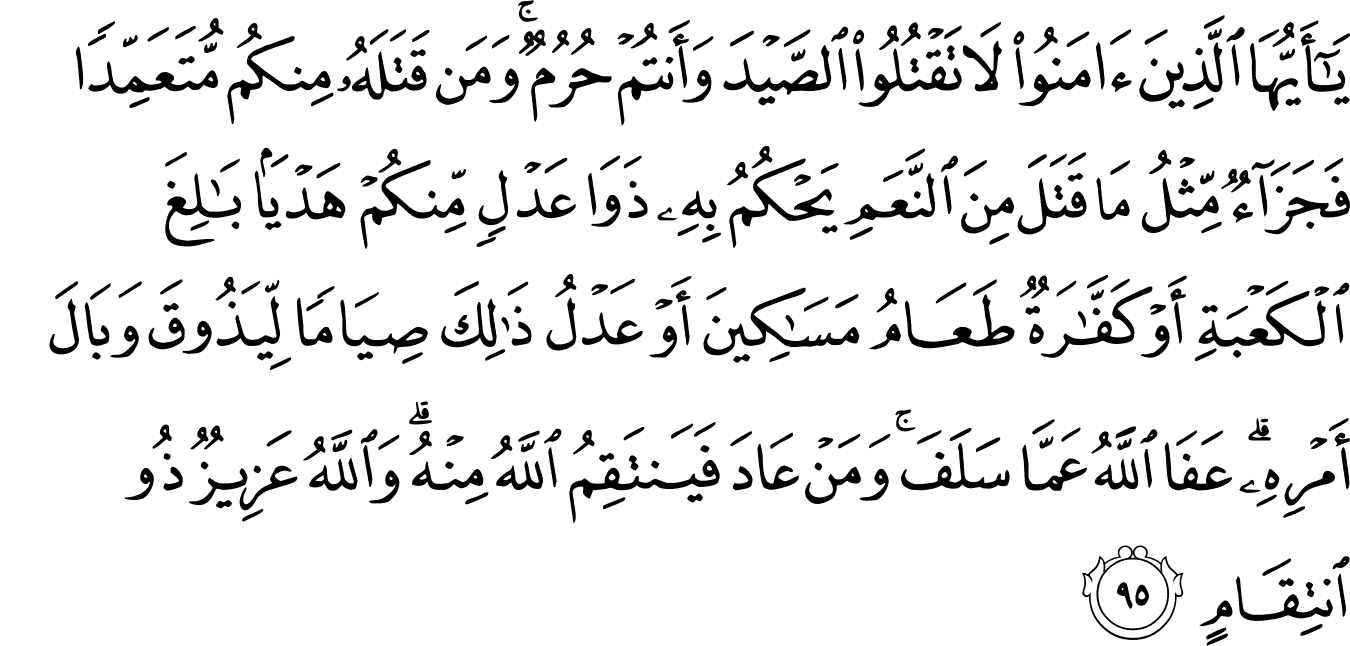 يَـٰٓأَيُّهَا ٱلَّذِينَ ءَامَنُوا۟ لَا تَقْتُلُوا۟ ٱلصَّيْدَ وَأَنتُمْ حُرُمٌ ۚ وَمَن قَتَلَهُۥ مِنكُم مُّتَعَمِّدًا
فَجَزَآءٌ مِّثْلُ مَا قَتَلَ مِنَ ٱلنَّعَمِ يَحْكُمُ بِهِۦ ذَوَا عَدْلٍ مِّنكُمْ هَدْيًۢا بَـٰلِغَ
ٱلْكَعْبَةِ أَوْ كَفَّـٰرَةٌ طَعَامُ مَسَـٰكِينَ أَوْ عَدْلُ ذَٰلِكَ صِيَامًا لِّيَذُوقَ وَبَالَ
أَمْرِهِۦ ۗ عَفَا ٱللَّهُ عَمَّا سَلَفَ ۚ وَمَنْ عَادَ فَيَنتَقِمُ ٱللَّهُ مِنْهُ ۗ وَٱللَّهُ عَزِيزٌ ذُو
ٱنتِقَامٍ ٩٥